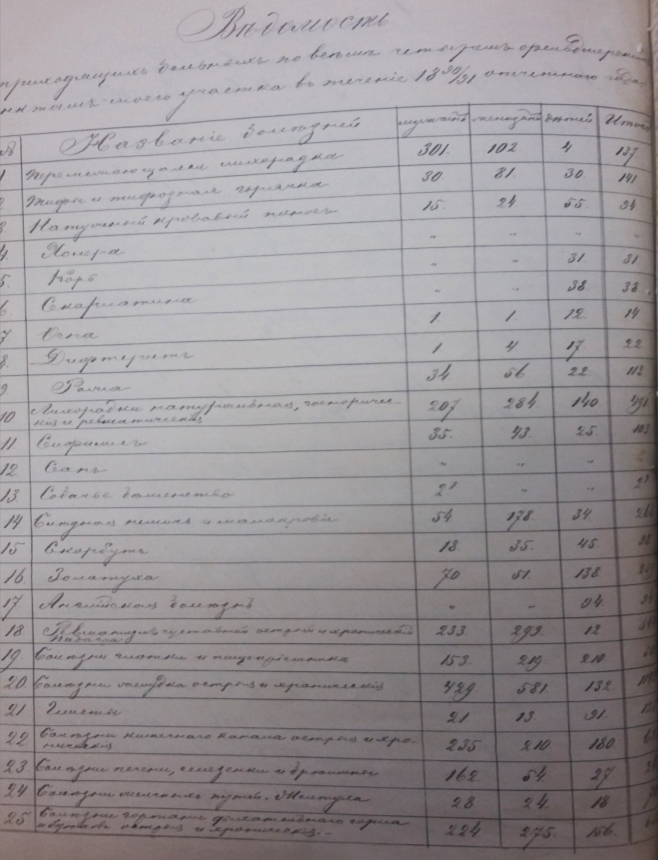 Вѣдомость
приходящихъ больныхъ по всѣмъ четыремъ фельдшерскимъ
пунктамъ моего участка въ теченіе 1890/91 отчетнаго года
№ Названіе болѣзней мущинъ женщинъ дѣтей Итого
1 Перемежающаяся лихорадка 301. 102 4 137
2 Тифы и тифозная горячка 30. 81. 30 141
3 кровавый поносъ 15. 24 55 94
4. Холера " " " "
5. Корь " " 31 31
6 Скарлатина " " 38 38
7 Оспа 1 1 12. 14
8. Дифтеритъ 1 4 17. 22
9 Рожа 34 56 22 112
10 Лихорадки катарральная,
и ревматическія 207 284 140
11 Сифилисъ 35. 43. 25. 103
12. Сапъ " " "
13 Собачье бѣшенство 2 " "
14 Блѣдная немочь и малокровіе 54 178 34.
15 Скорбутъ 18 35. 45.
16. Золотуха 70 51. 138
17 Англійская болѣзнь " " 94
18 Ревматизмъ суставной острый и хроническій 233. 293. 12
19. Болѣзни глотки и пищепріемника 153. 219 210
20. Болѣзни желудка острыя и хроническія 429 581. 132
21 Глисты 21 13 91.
22 Болѣзни кишечнаго канала острыя и хро-
ническія 235 210 180
23 Болѣзни печени, селезенки и брюшины 162 54 27
24 Болѣзни желчныхъ путей. Желтуха 28 24. 18
25 Болѣзни гортани дыхательнаго горла
острыя и хроническія. 224 275. 156.